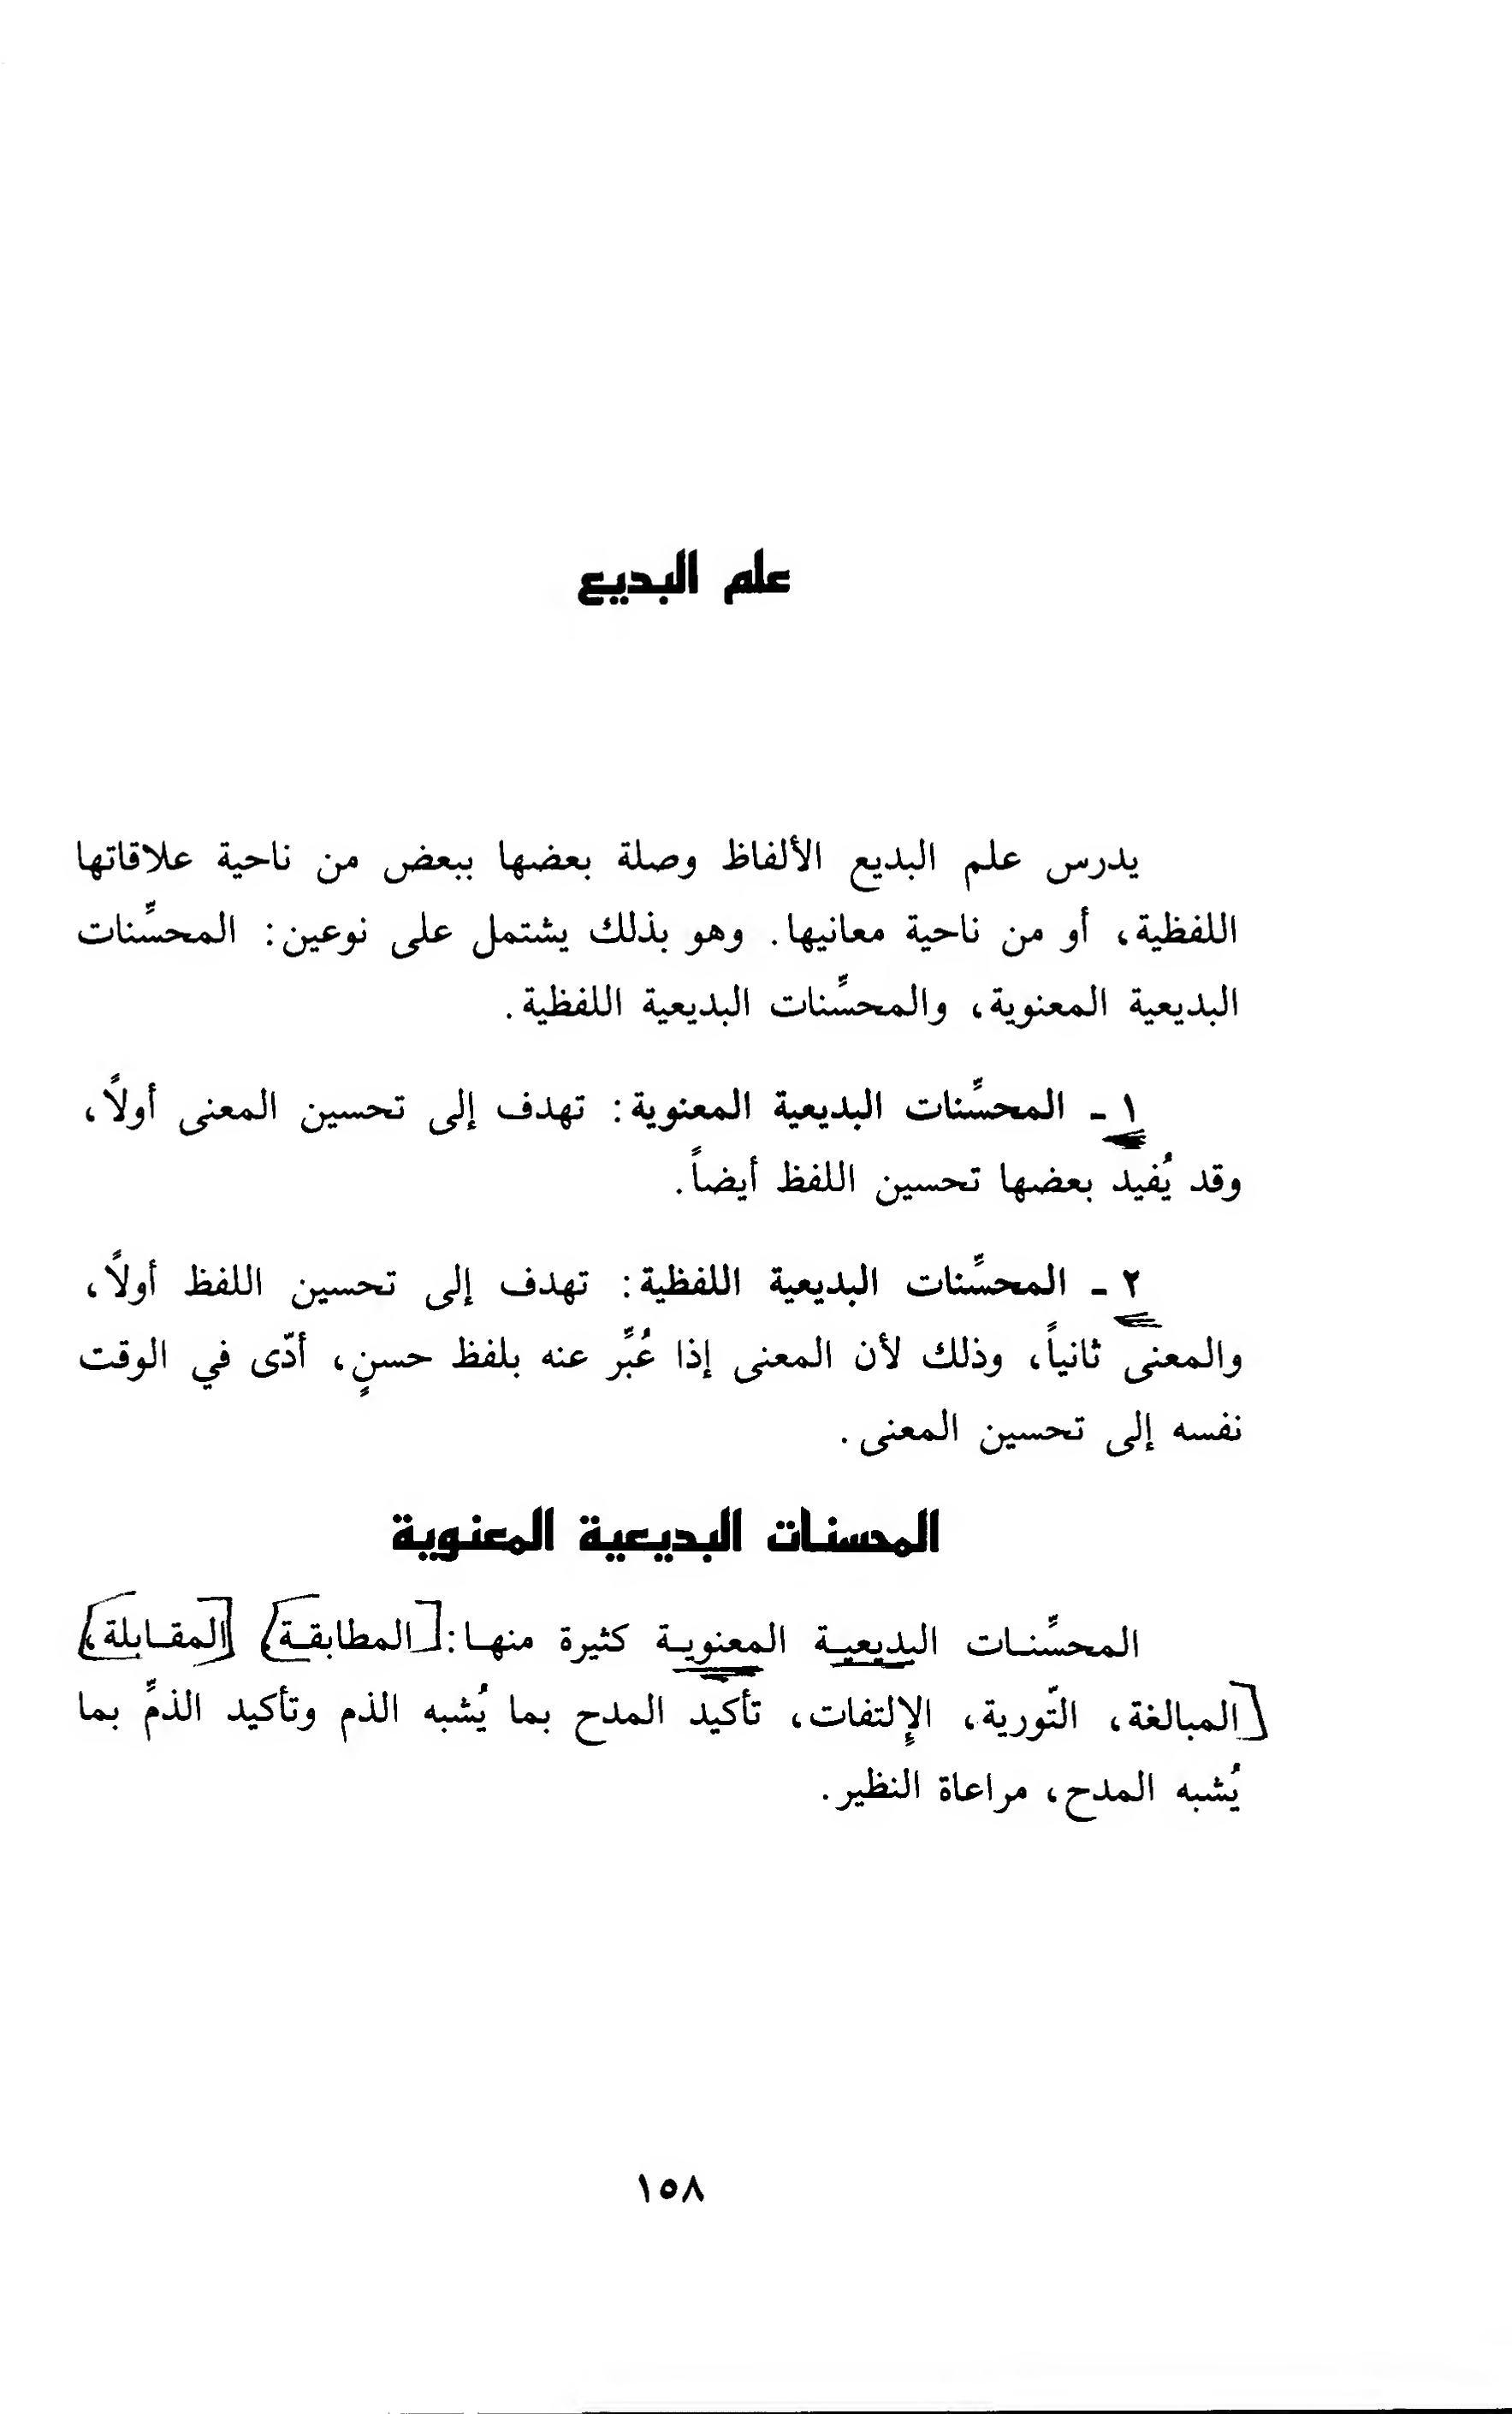 علم البديع
يدرس علم البديع الألفاظ وصلة بعضها ببعض من ناحية علاقاتها
اللفظية، أو من ناحية معانيها. وهو بذلك يشتمل على نوعين: المحسِّنات
البديعية المعنوية، والمحسِّنات البديعية اللفظية.
١ - المحسِّنات البديعية المعنوية: تهدف إلى تحسين المعنى أولاً،
وقد يُفيد بعضها تحسين اللفظ أيضاً.
٢ - المحسِّنات البديعية اللفظية: تهدف إلى تحسين اللفظ أولاً،
والمعنى ثانياً، وذلك لأن المعنى إذا عُبِّر عنه بلفظ حسنٍ، أدّى في الوقت
نفسه إلى تحسين المعنى.
المحسنات البديعية المعنوية
المحسِّنـات البديعيـة المعنويـة كثيرة منهـا: المطابقـة، المقـابلة،
المبالغة، التّورية، الإِلتفات، تأكيد المدح بما يُشبه الذم وتأكيد الذمِّ بما
يُشبه المدح، مراعاة النظير.
١٥٨